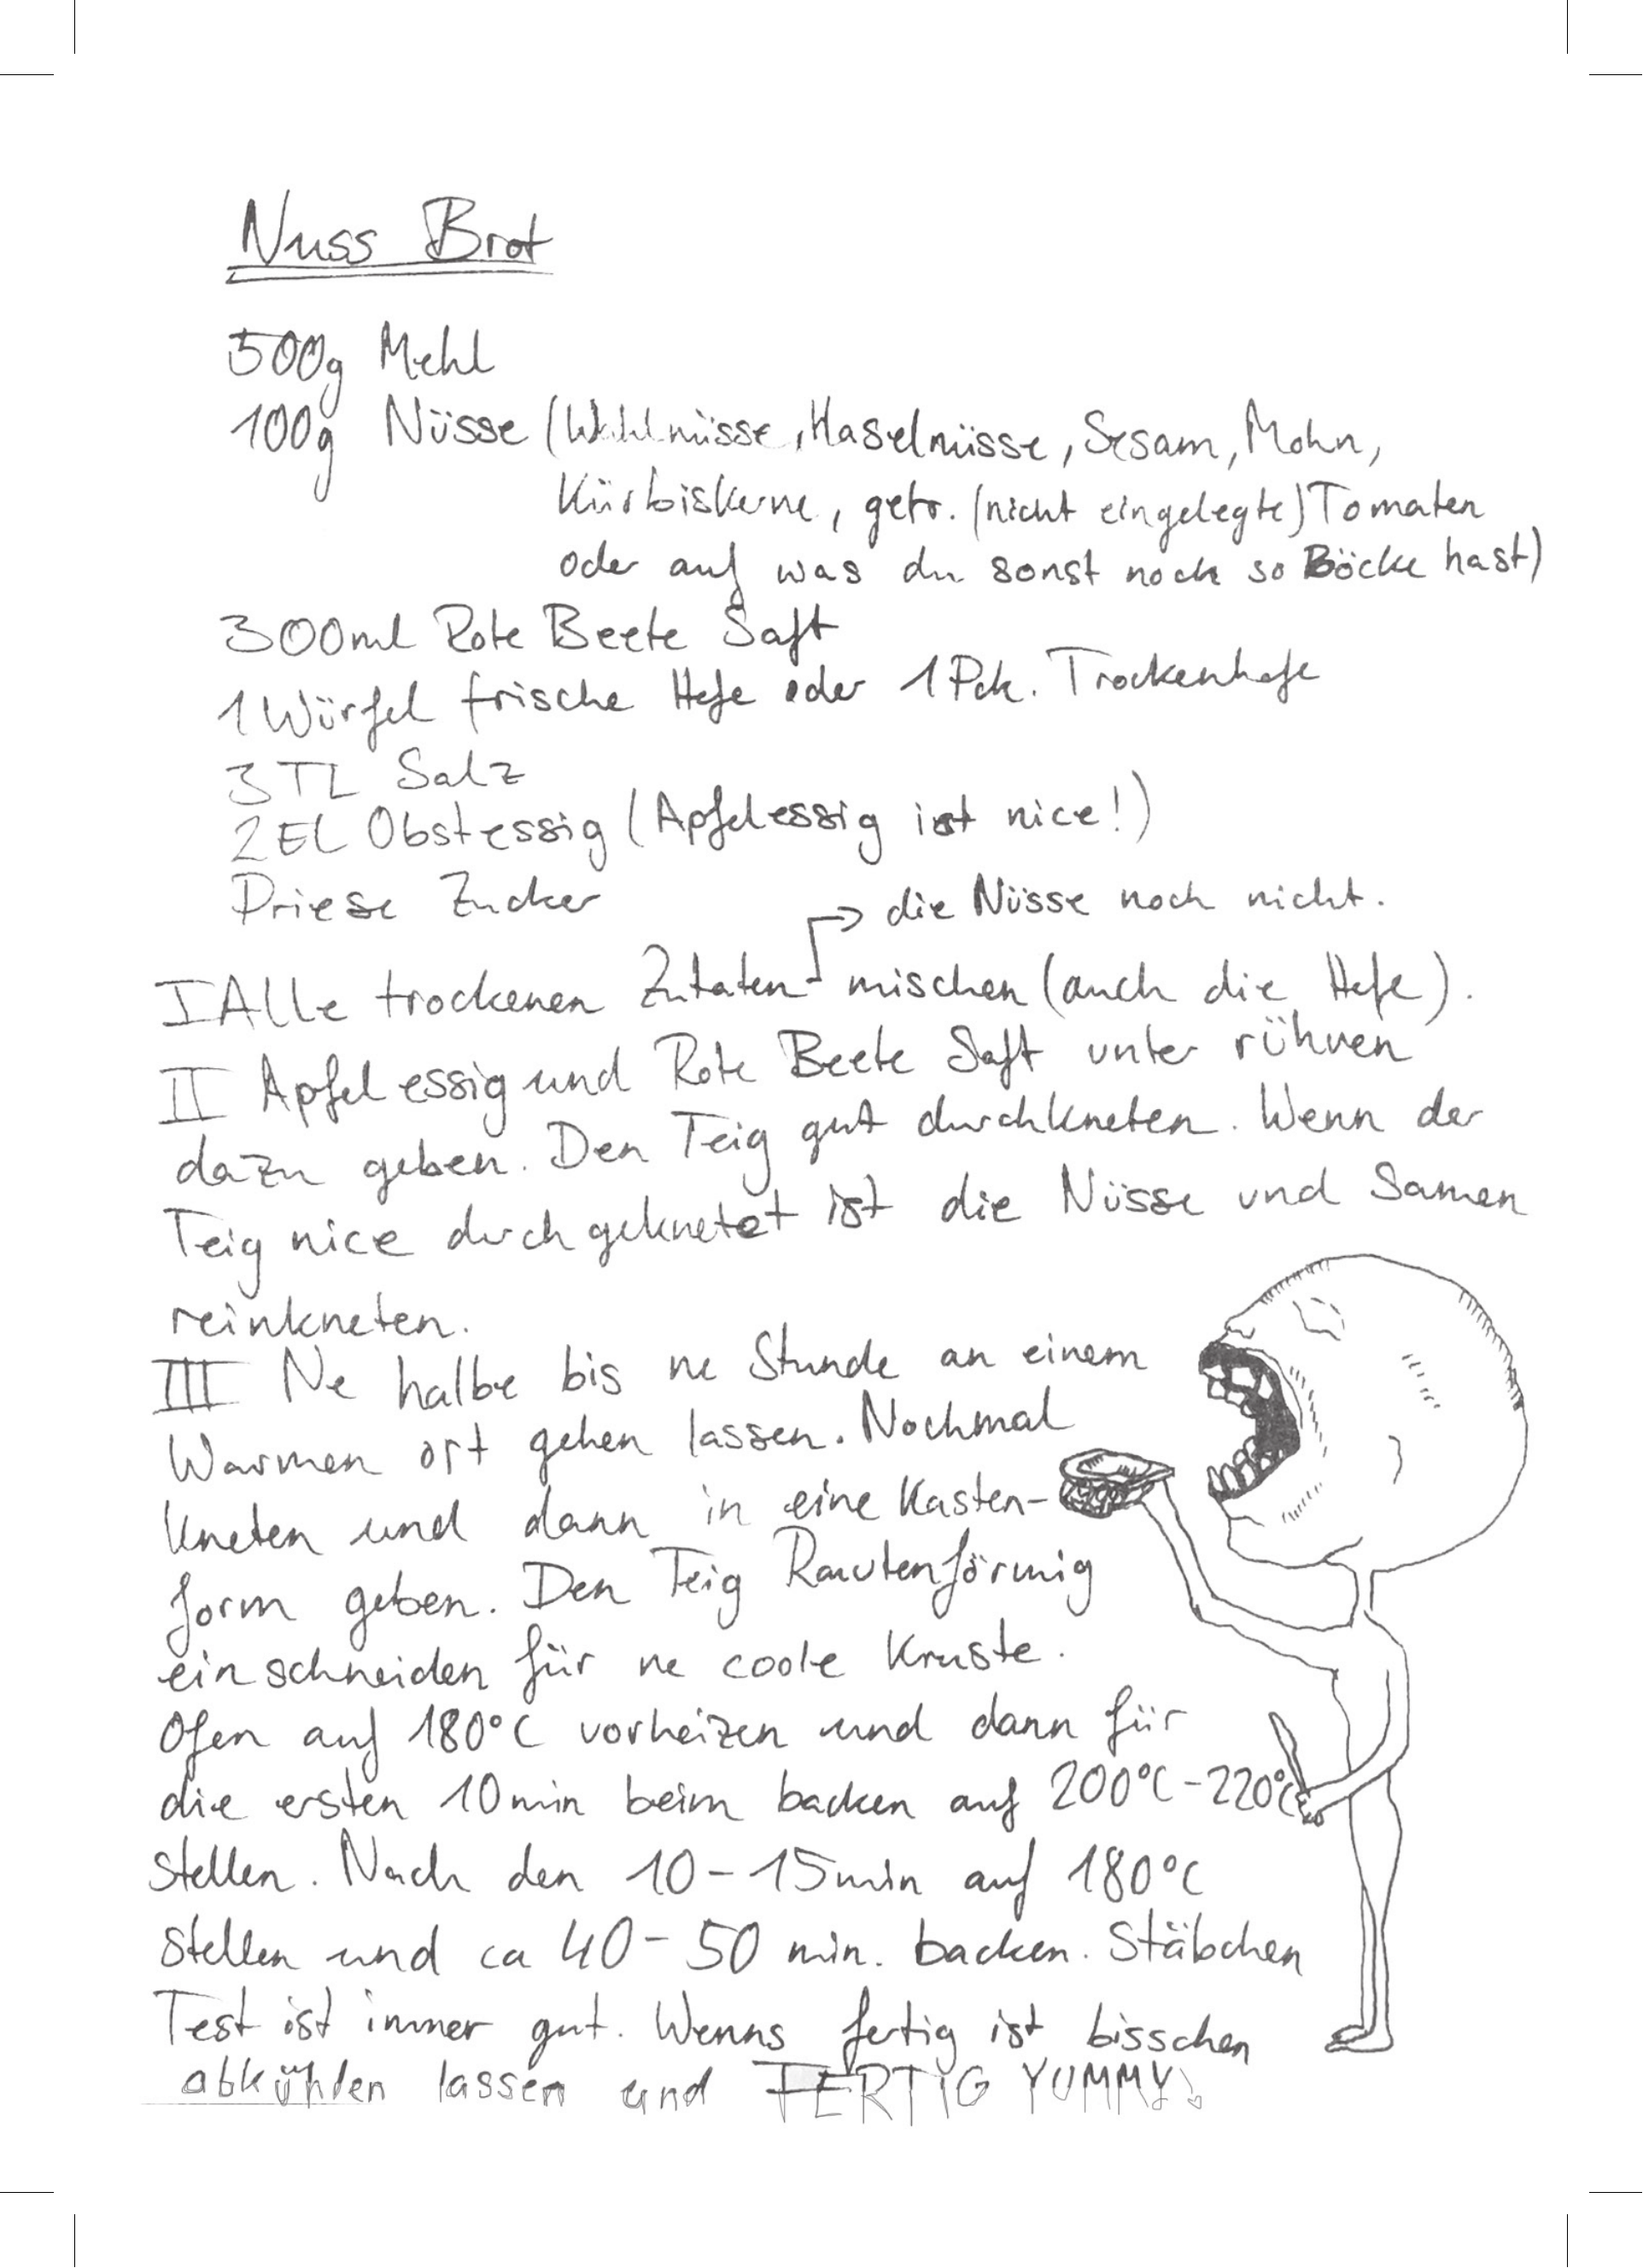 Nuss Brot
500g Mehl
100g Nüsse (Wahlnüsse, Haselnüsse, Sesam, Mohn,
Kürbiskerne, getr. (nicht eingelegte) Tomaten
oder auf was du sonst noch so Böcke hast)
300ml Rote Beete Saft
1 Würfel frische Hefe oder 1 Pck. Trockenhefe
3 TL Salz
2 EL Obstessig (Apfelessig ist nice!)
Priese Zucker
die Nüsse noch nicht.
I Alle trockenen Zutaten mischen (auch die Hefe).
II Apfelessig und Rote Beete Saft unter rühren
dazu geben. Den Teig gut durchkneten. Wenn der
Teig nice durchgeknetet ist die Nüsse und Samen
reinkneten.
III Ne halbe bis ne Stunde an einem
Warmen ort gehen lassen. Nochmal
kneten und dann in eine Kasten-
form geben. Den Teig Rautenförmig
einschneiden für ne coole Kruste.
Ofen auf 180°C vorheizen und dann für
die ersten 10min beim backen auf 200°C-220°C
stellen. Nach den 10-15min auf 180°C
stellen und ca 40-50 min. backen. Stäbchen
Test ist immer gut. Wenns fertig ist bisschen
abkühlen lassen und FERTIG YUMMY!